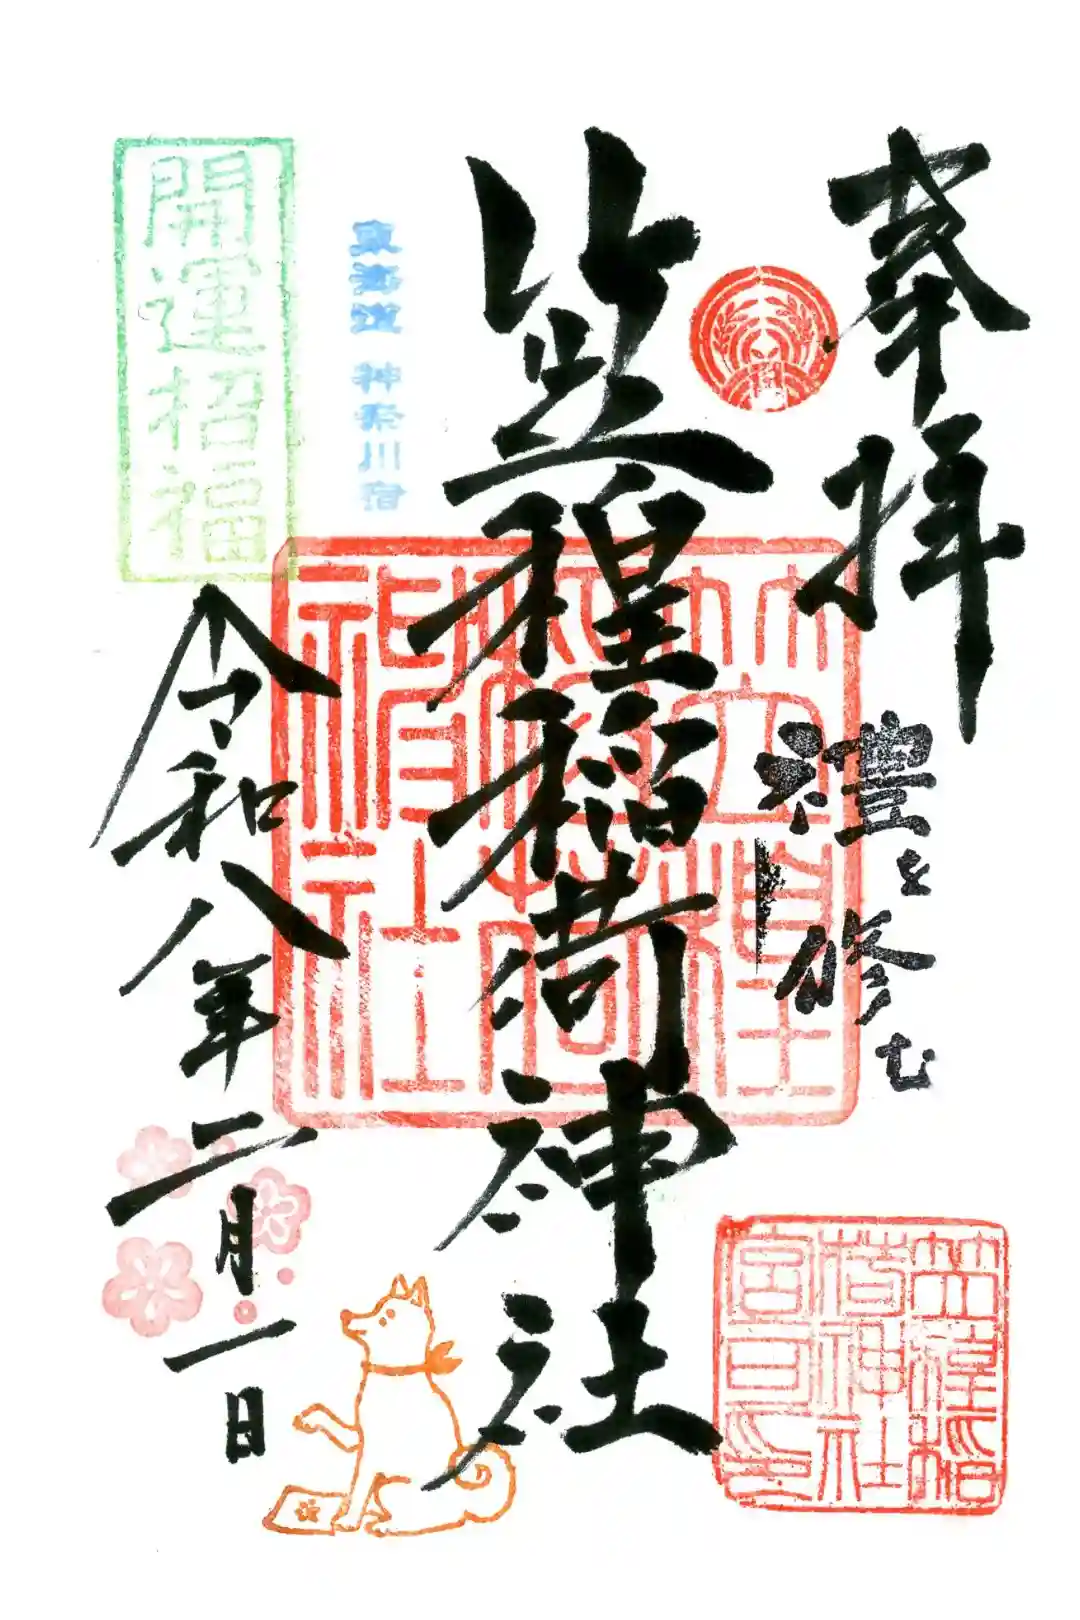 奉拝
禮を修む
笠䅣稲荷神社
笠䅣
稲荷
神社
笠䅣稲
荷神社
宮司印
東海道 神奈川宿
開運招福
令和八年二月一日